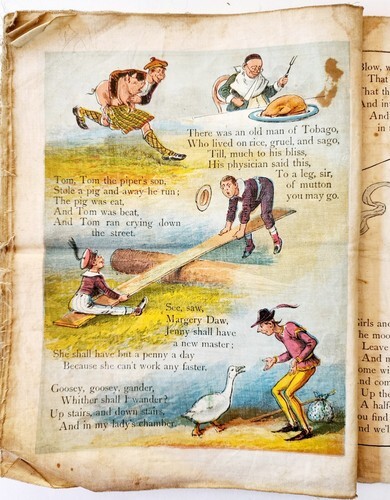 There was an old man of Tobago,
Who lived on rice, gruel, and sago,
Till, much to his bliss,
His physician said this,
To a leg, sir,
of mutton
you may go.
Tom, Tom the piper's son,
Stole a pig and away he run;
The pig was eat,
And Tom was beat,
And Tom ran crying down
the street.
See, saw,
Margery Daw,
Jenny shall have
a new master;
She shall have but a penny a day
Because she can't work any faster.
Goosey, goosey, gander,
Whither shall I wander?
Up stairs, and down stairs,
And in my lady's chamber.
Blow, w
That
That th
And in
A
in
Girls and
The moo
Leave
And m
Come wi
And com
Up the
A half-
You find
And we'll